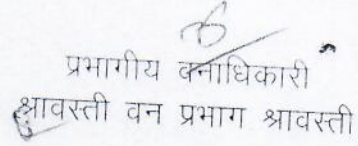 प्रभागीय वनाधिकारी
श्रावस्ती वन प्रभाग श्रावस्ती